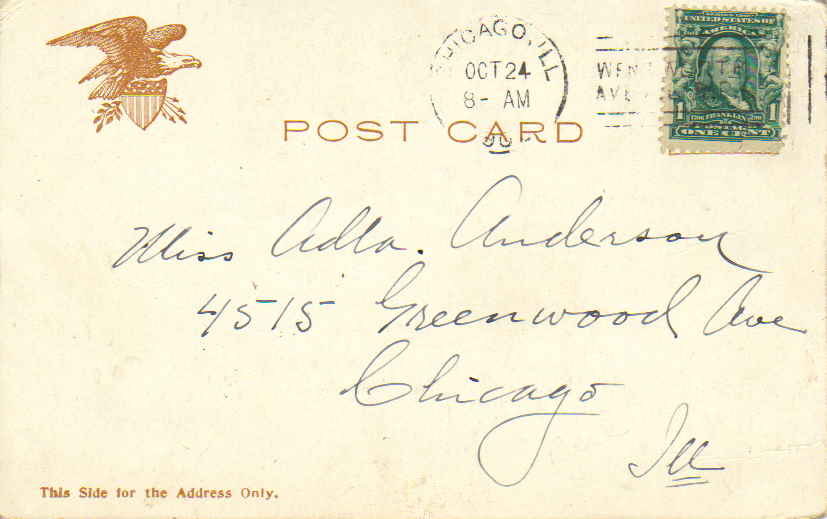 CHICAGO, ILL
OCT 24
8- AM
UNITED STATES OF
AMERICA
1 FRANKLIN 1
ONE CENT
POST CARD
Miss Adla. Anderson
4515 Greenwood Ave
Chicago
Ill
This Side for the Address Only.